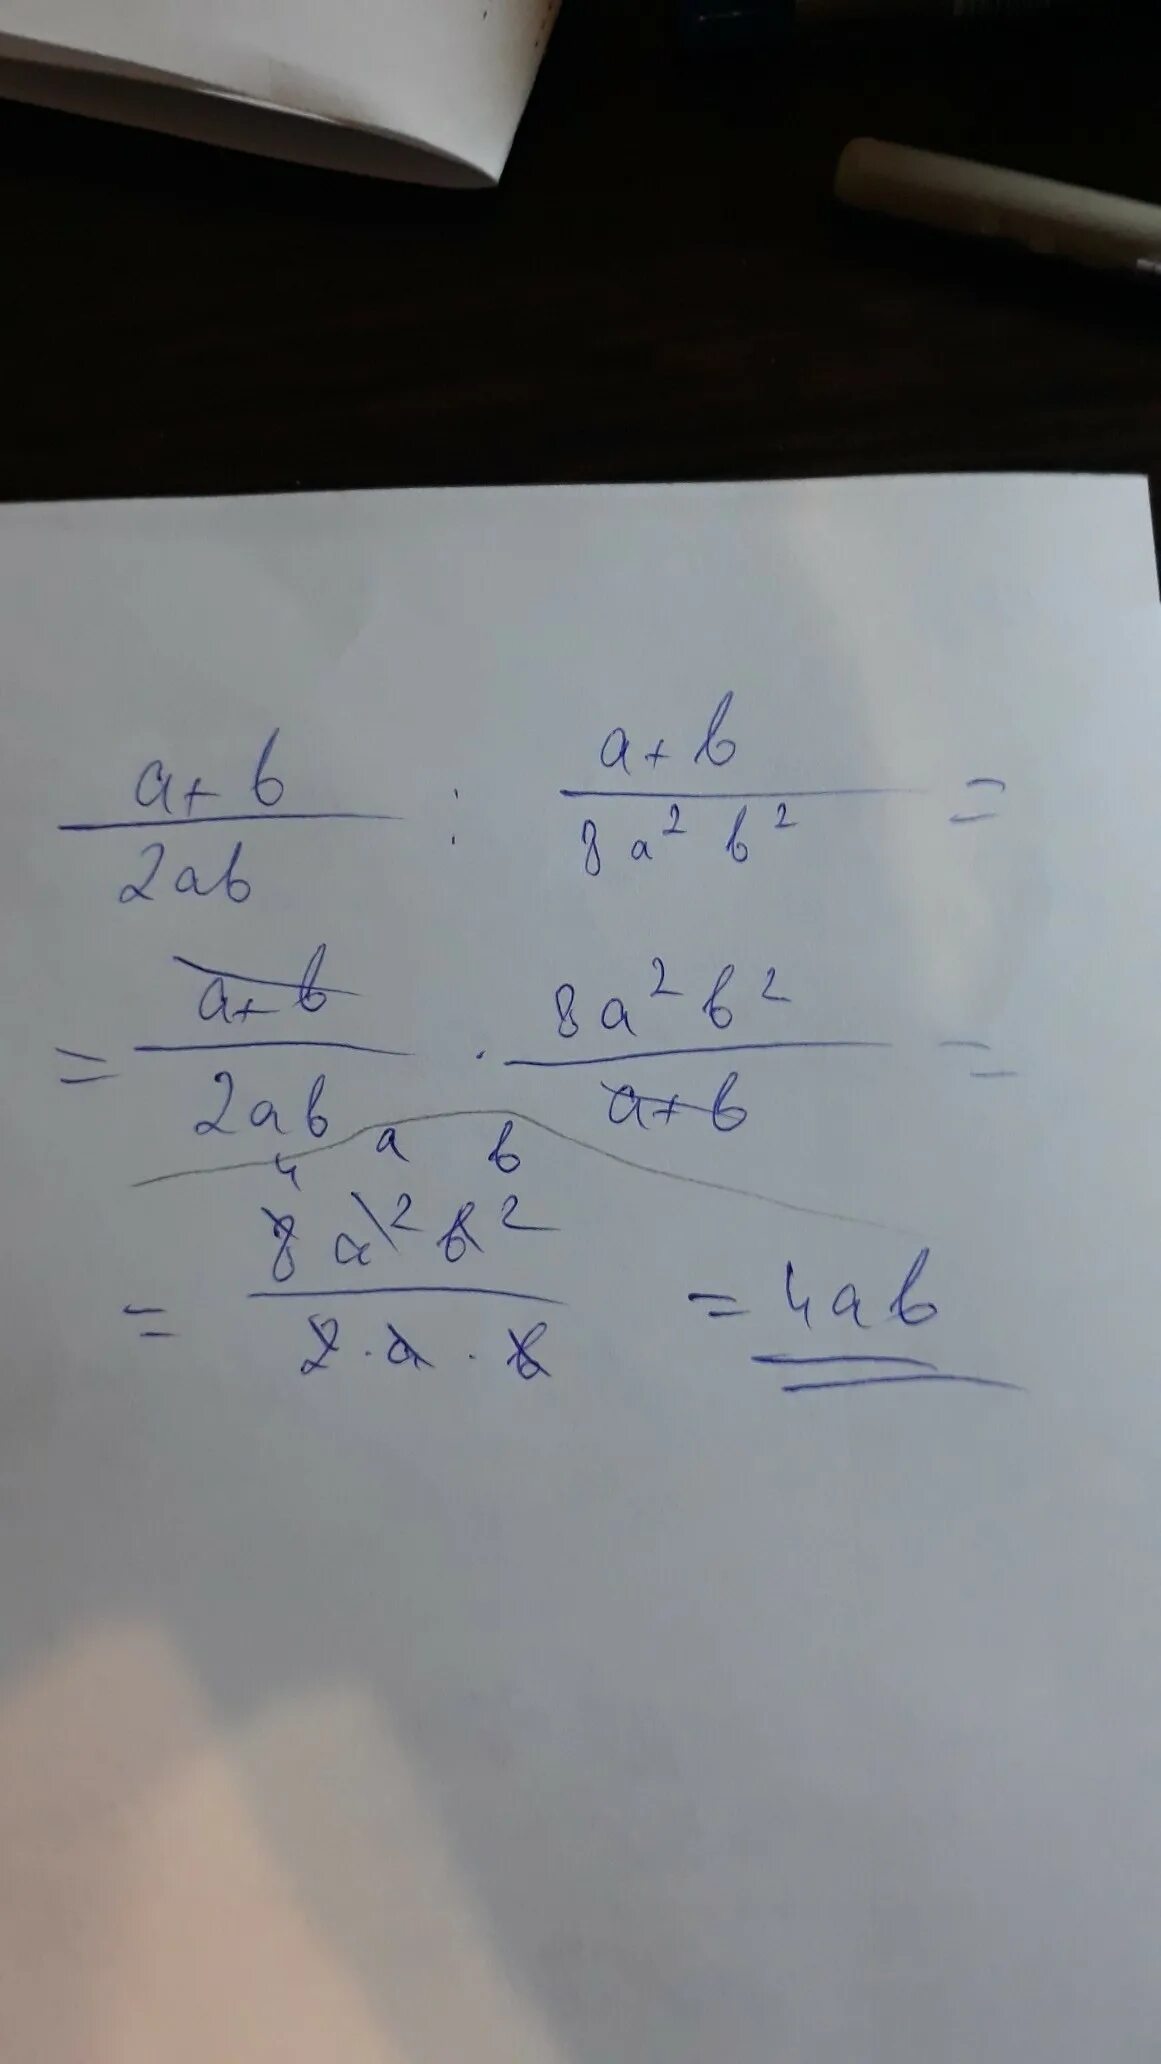 a+b/2ab : a+b/8a²b² =
= a+b/2ab · 8a²b²/a+b =
4 a b
= 8a²b²/2·a·b = 4ab